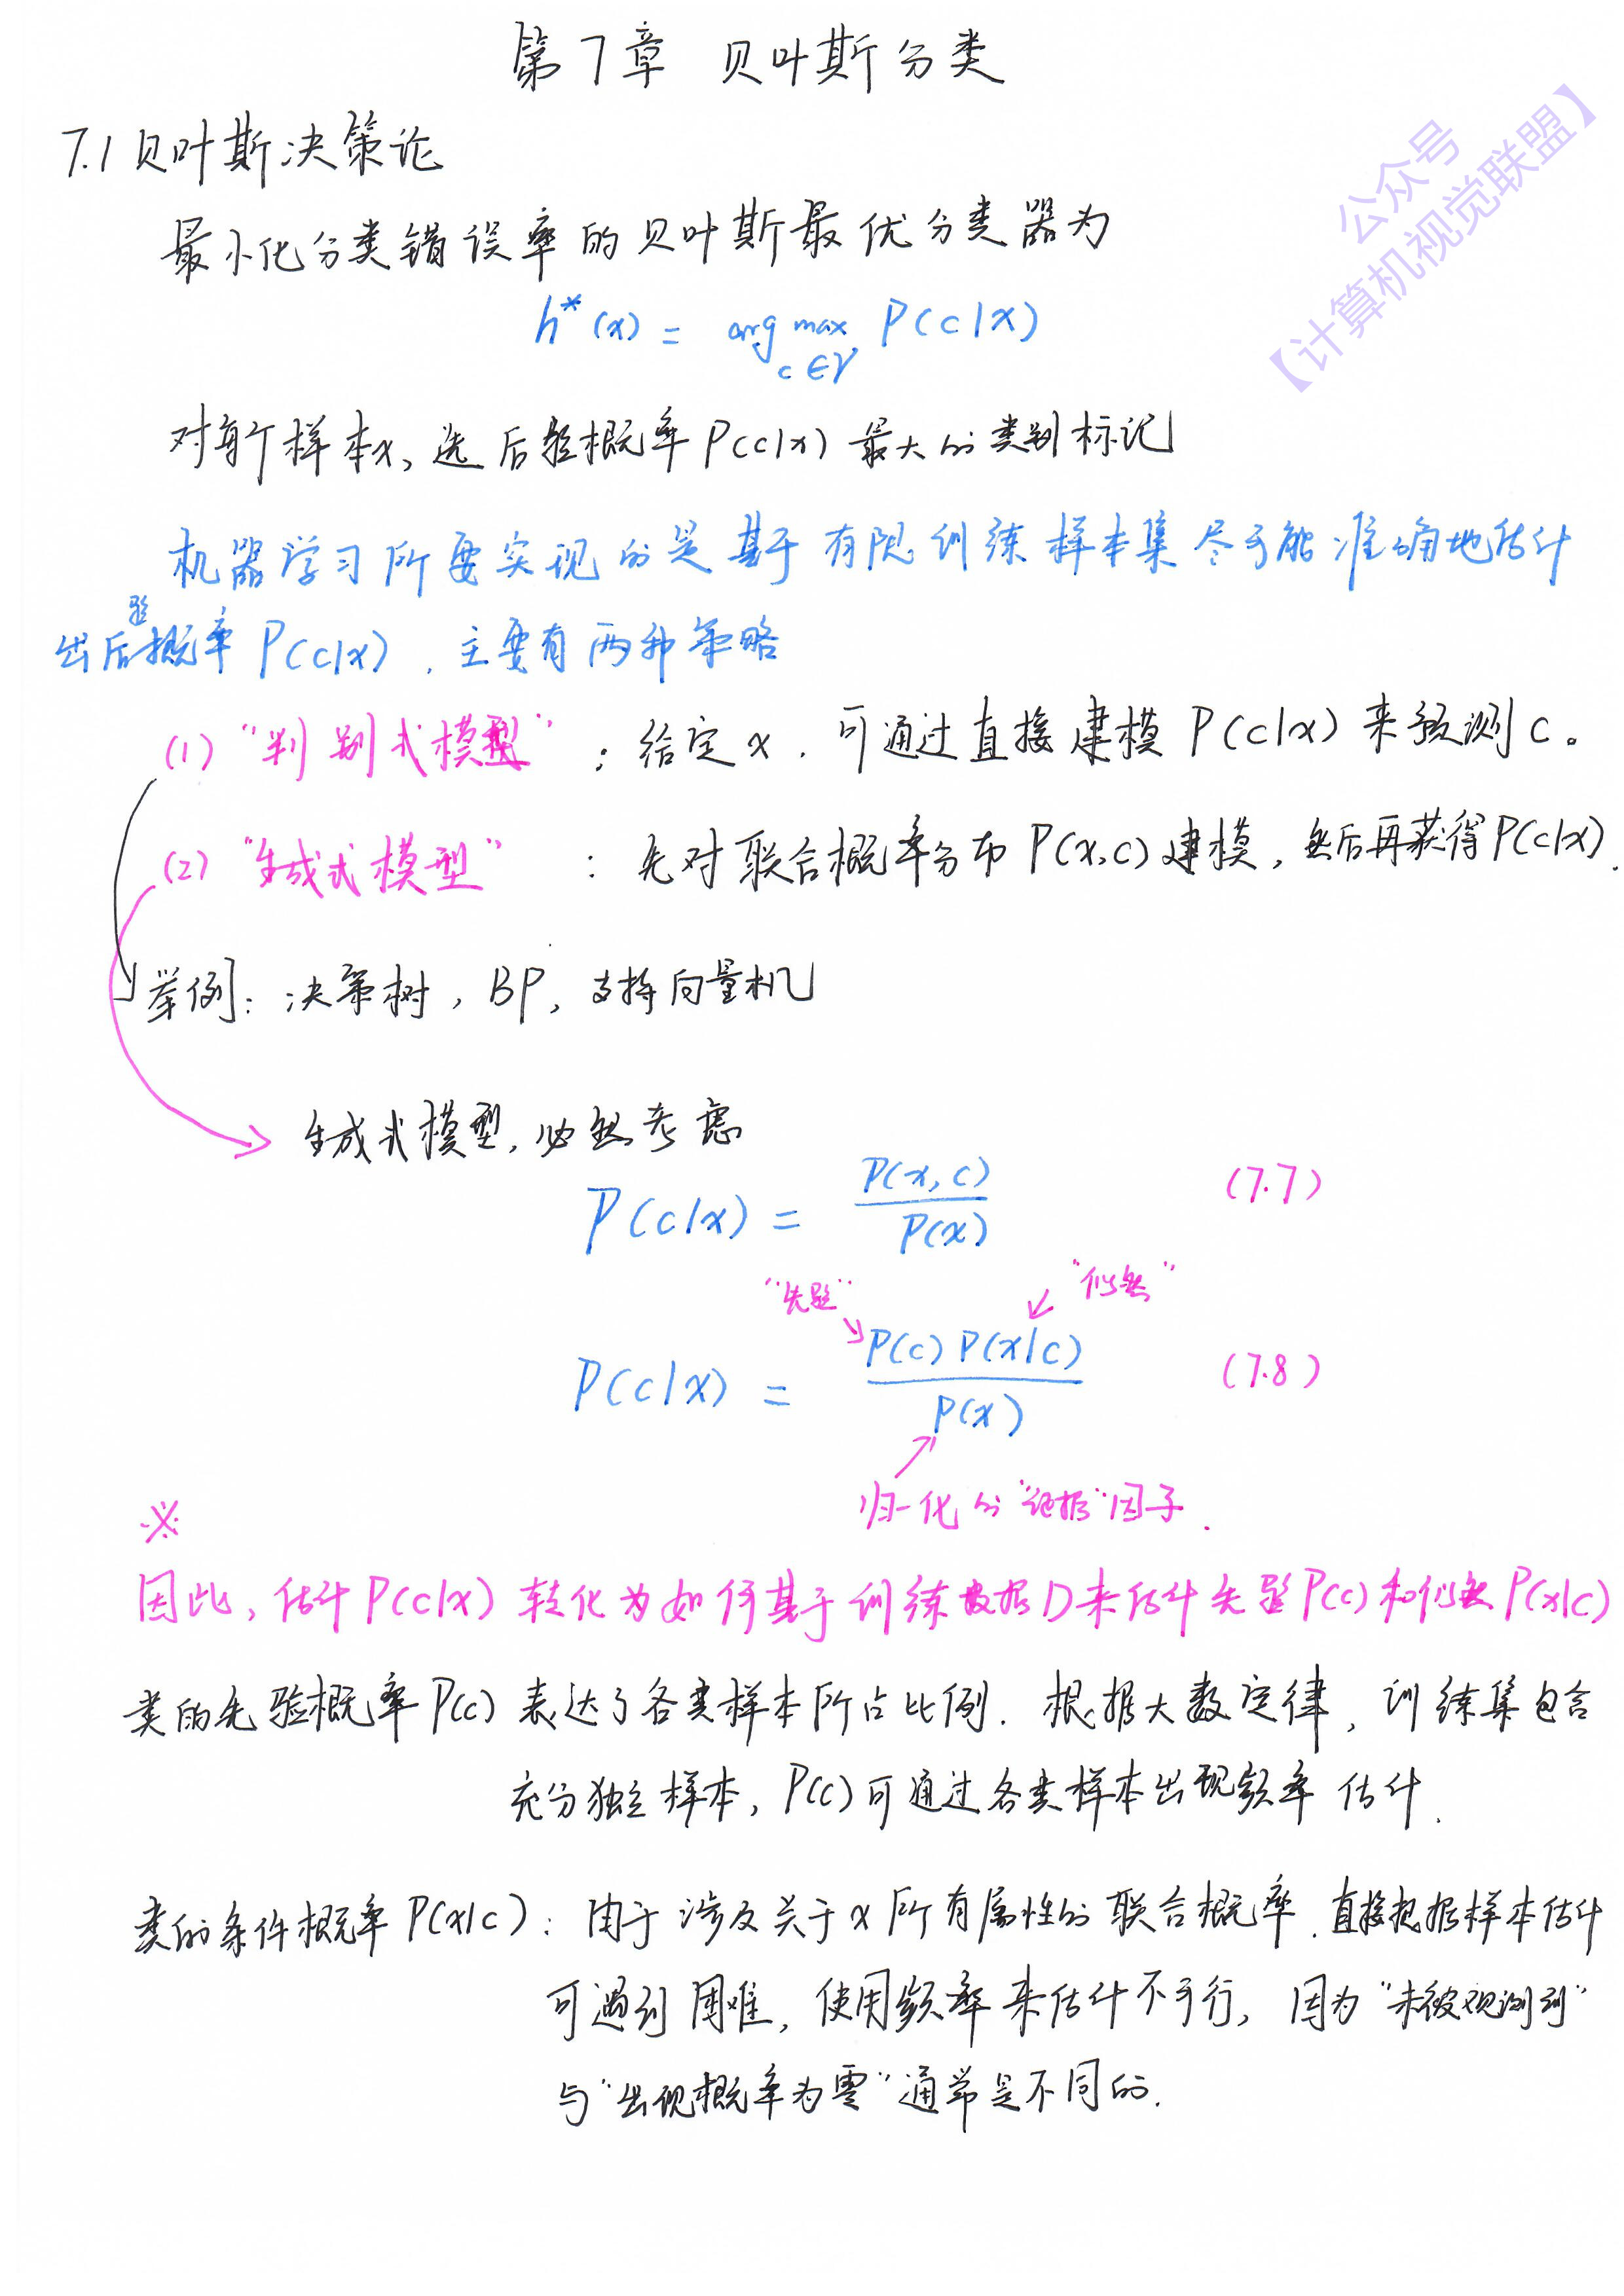 第7章 贝叶斯分类
公众号
【计算机视觉联盟】
7.1 贝叶斯决策论
最小化分类错误率的贝叶斯最优分类器为
h*(x) = arg max P(c|x)
c∈Y
对每个样本x, 选后验概率P(c|x) 最大的类别标记
机器学习所要实现的是基于有限训练样本集尽可能准确地估计
出后验概率 P(c|x), 主要有两种策略
(1) "判别式模型" : 给定x, 可通过直接建模 P(c|x) 来预测c。
(2) "生成式模型" : 先对联合概率分布 P(x,c) 建模, 然后再获得P(c|x).
举例: 决策树, BP, 支持向量机
生成式模型, 必然考虑
P(c|x) = P(x,c) / P(x) (7.7)
"先验" "似然"
P(c|x) = P(c) P(x|c) / P(x) (7.8)
归一化的"证据"因子.
※
因此, 估计P(c|x) 转化为如何基于训练数据D来估计先验P(c)和似然P(x|c)
类的先验概率P(c) 表达了各类样本所占比例. 根据大数定律, 训练集包含
充分独立样本, P(c)可通过各类样本出现频率估计.
类的条件概率P(x|c): 由于涉及关于x所有属性的联合概率. 直接根据样本估计
可遇到困难, 使用频率来估计不可行, 因为"未被观测到"
与"出现概率为零"通常是不同的.